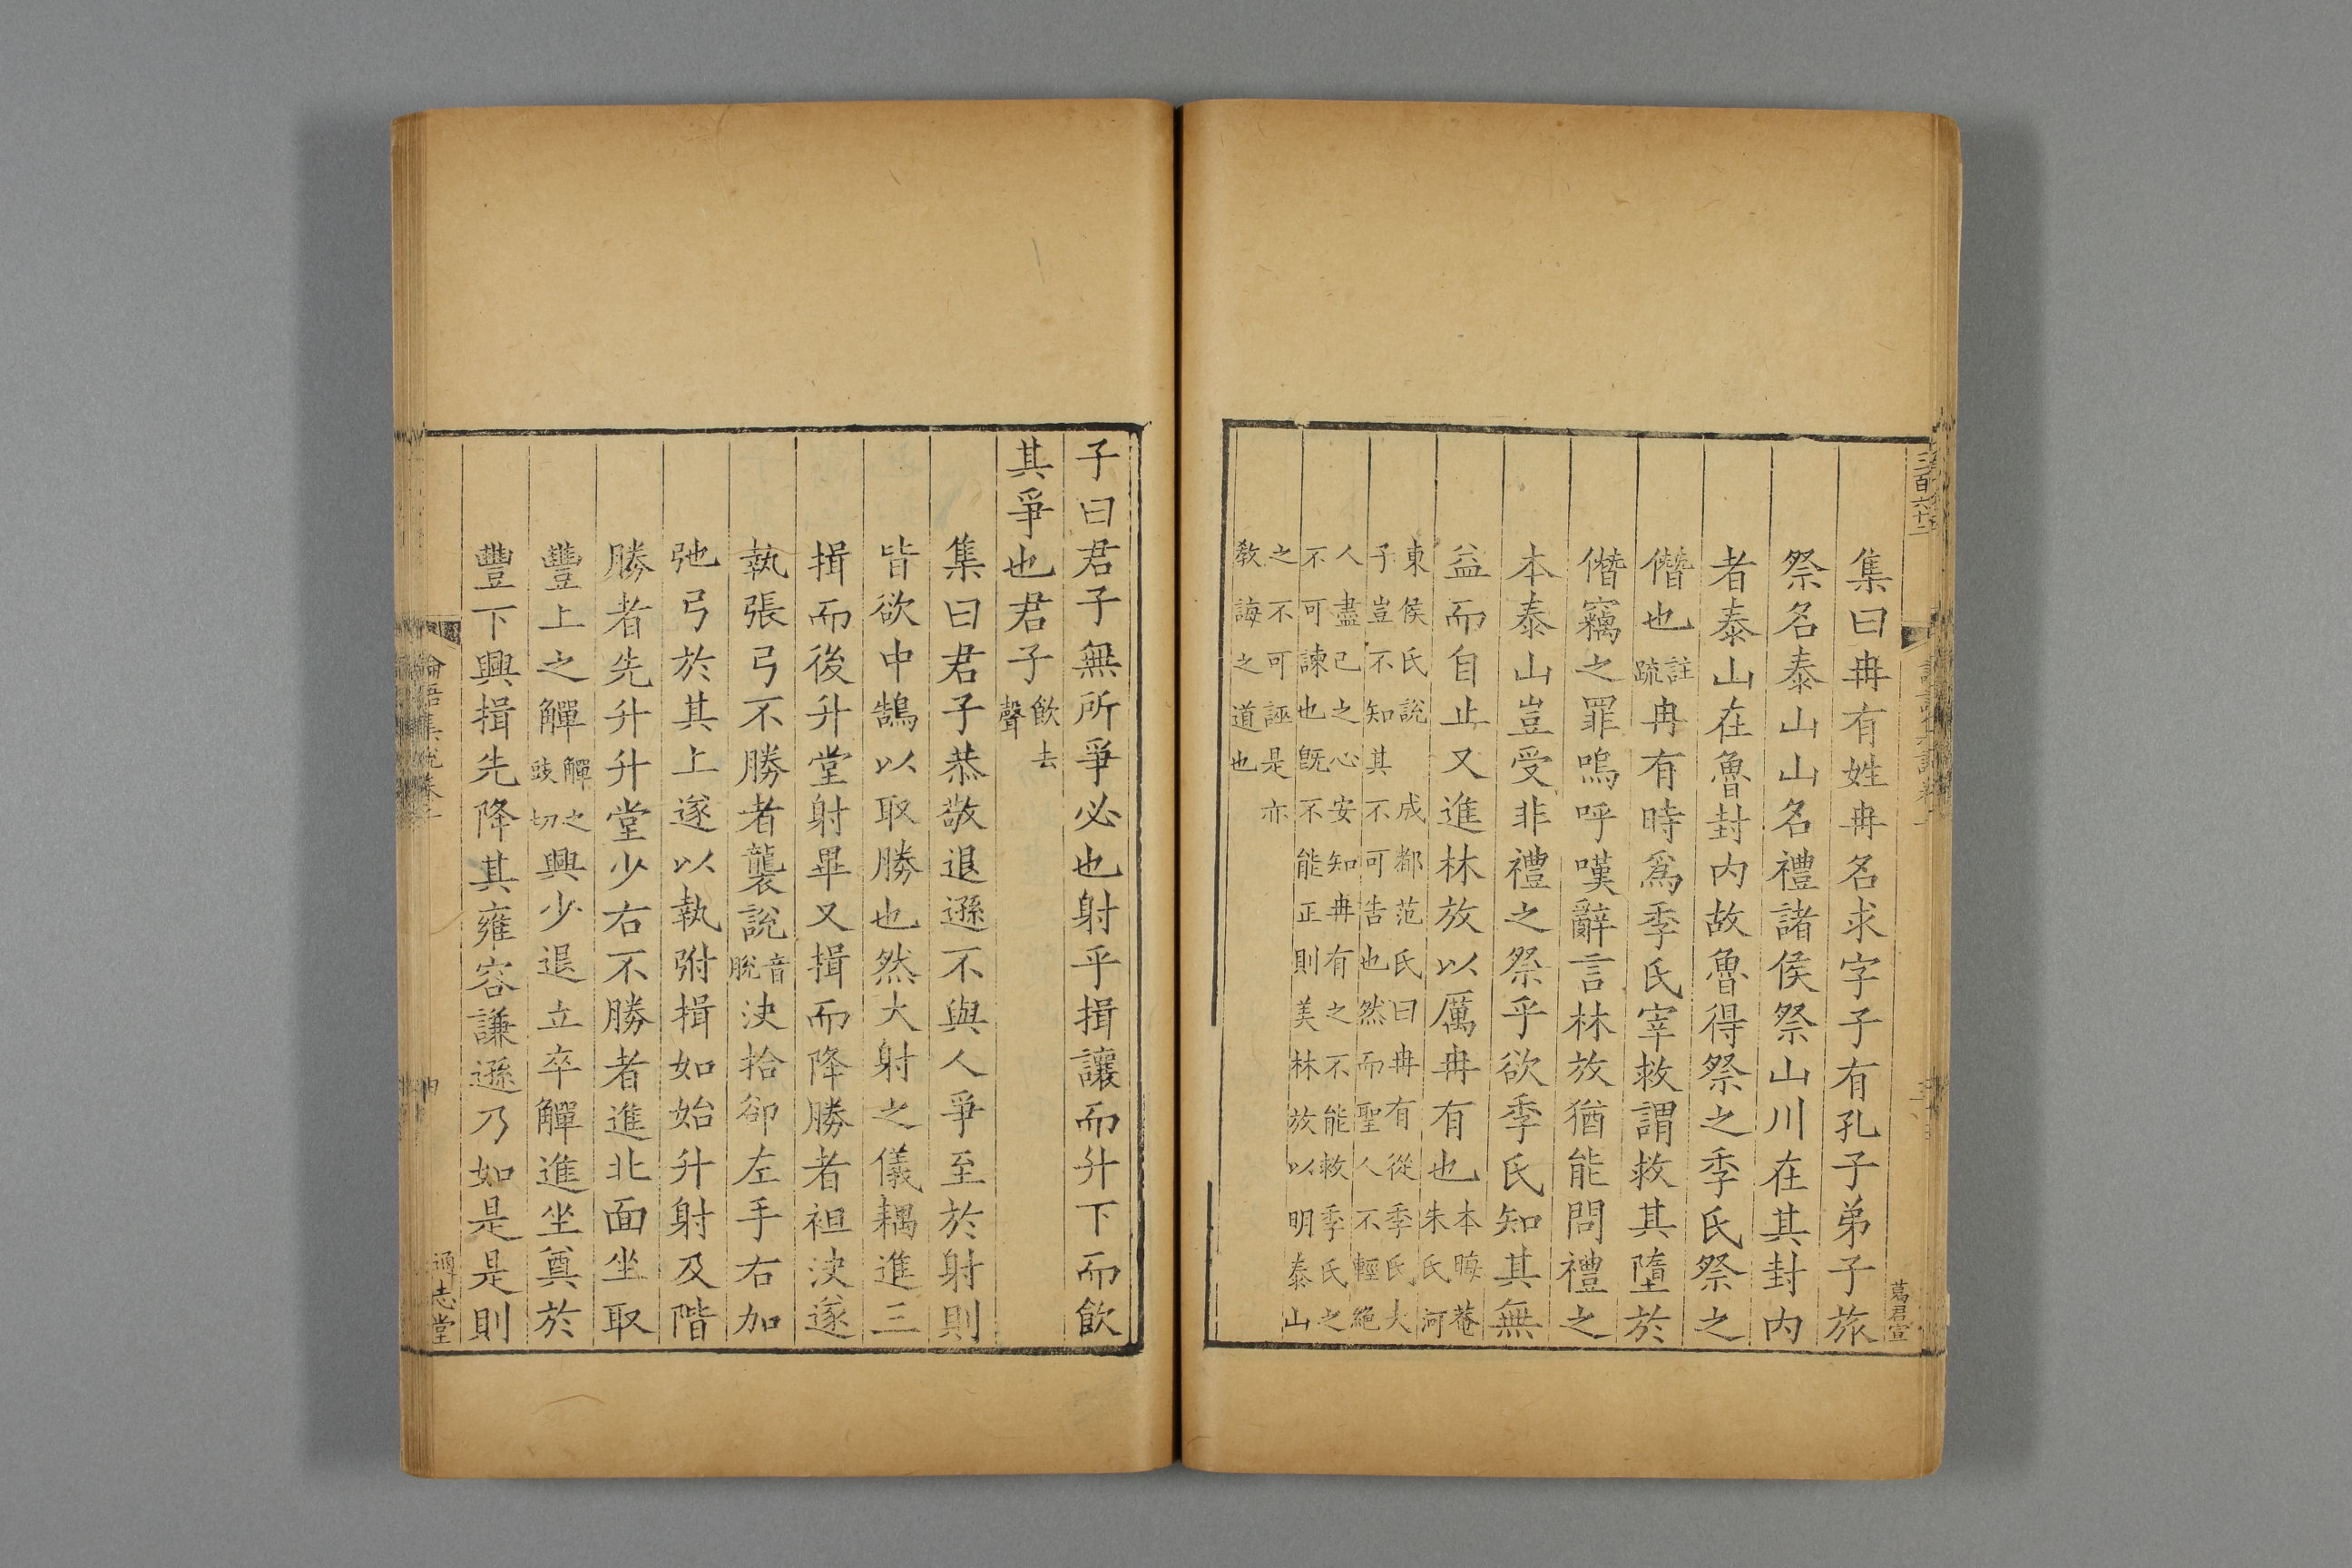 三百六十二
葛君宣
集曰冉有姓冉名求字子有孔子弟子旅
祭名泰山山名禮諸侯祭山川在其封内
者泰山在魯封内故魯得祭之季氏祭之
僭也註疏冉有時爲季氏宰救謂救其墮於
僭竊之罪嗚呼嘆辭言林放猶能問禮之
本泰山豈受非禮之祭乎欲季氏知其無
益而自止又進林放以厲冉有也本晦菴朱氏河
東侯氏說 成都范氏曰冉有從季氏大
子豈不知其不可告也然而聖人不輕絶
人盡己之心安知冉有之不能救季氏之
不可諫也旣不能正則美林放以明泰山
之不可誣是亦
教誨之道也
子曰君子無所爭必也射乎揖讓而升下而飮
其爭也君子飮去聲
集曰君子恭敬退遜不與人爭至於射則
皆欲中鵠以取勝也然大射之儀耦進三
揖而後升堂射畢又揖而降勝者袒決遂
執張弓不勝者襲說音脫決拾卻左手右加
弛弓於其上遂以執弣揖如始升射及階
勝者先升升堂少右不勝者進北面坐取
豐上之觶觶之豉切興少退立卒觶進坐奠於
豐下興揖先降其雍容謙遜乃如是是則
論語集說卷二
通志堂